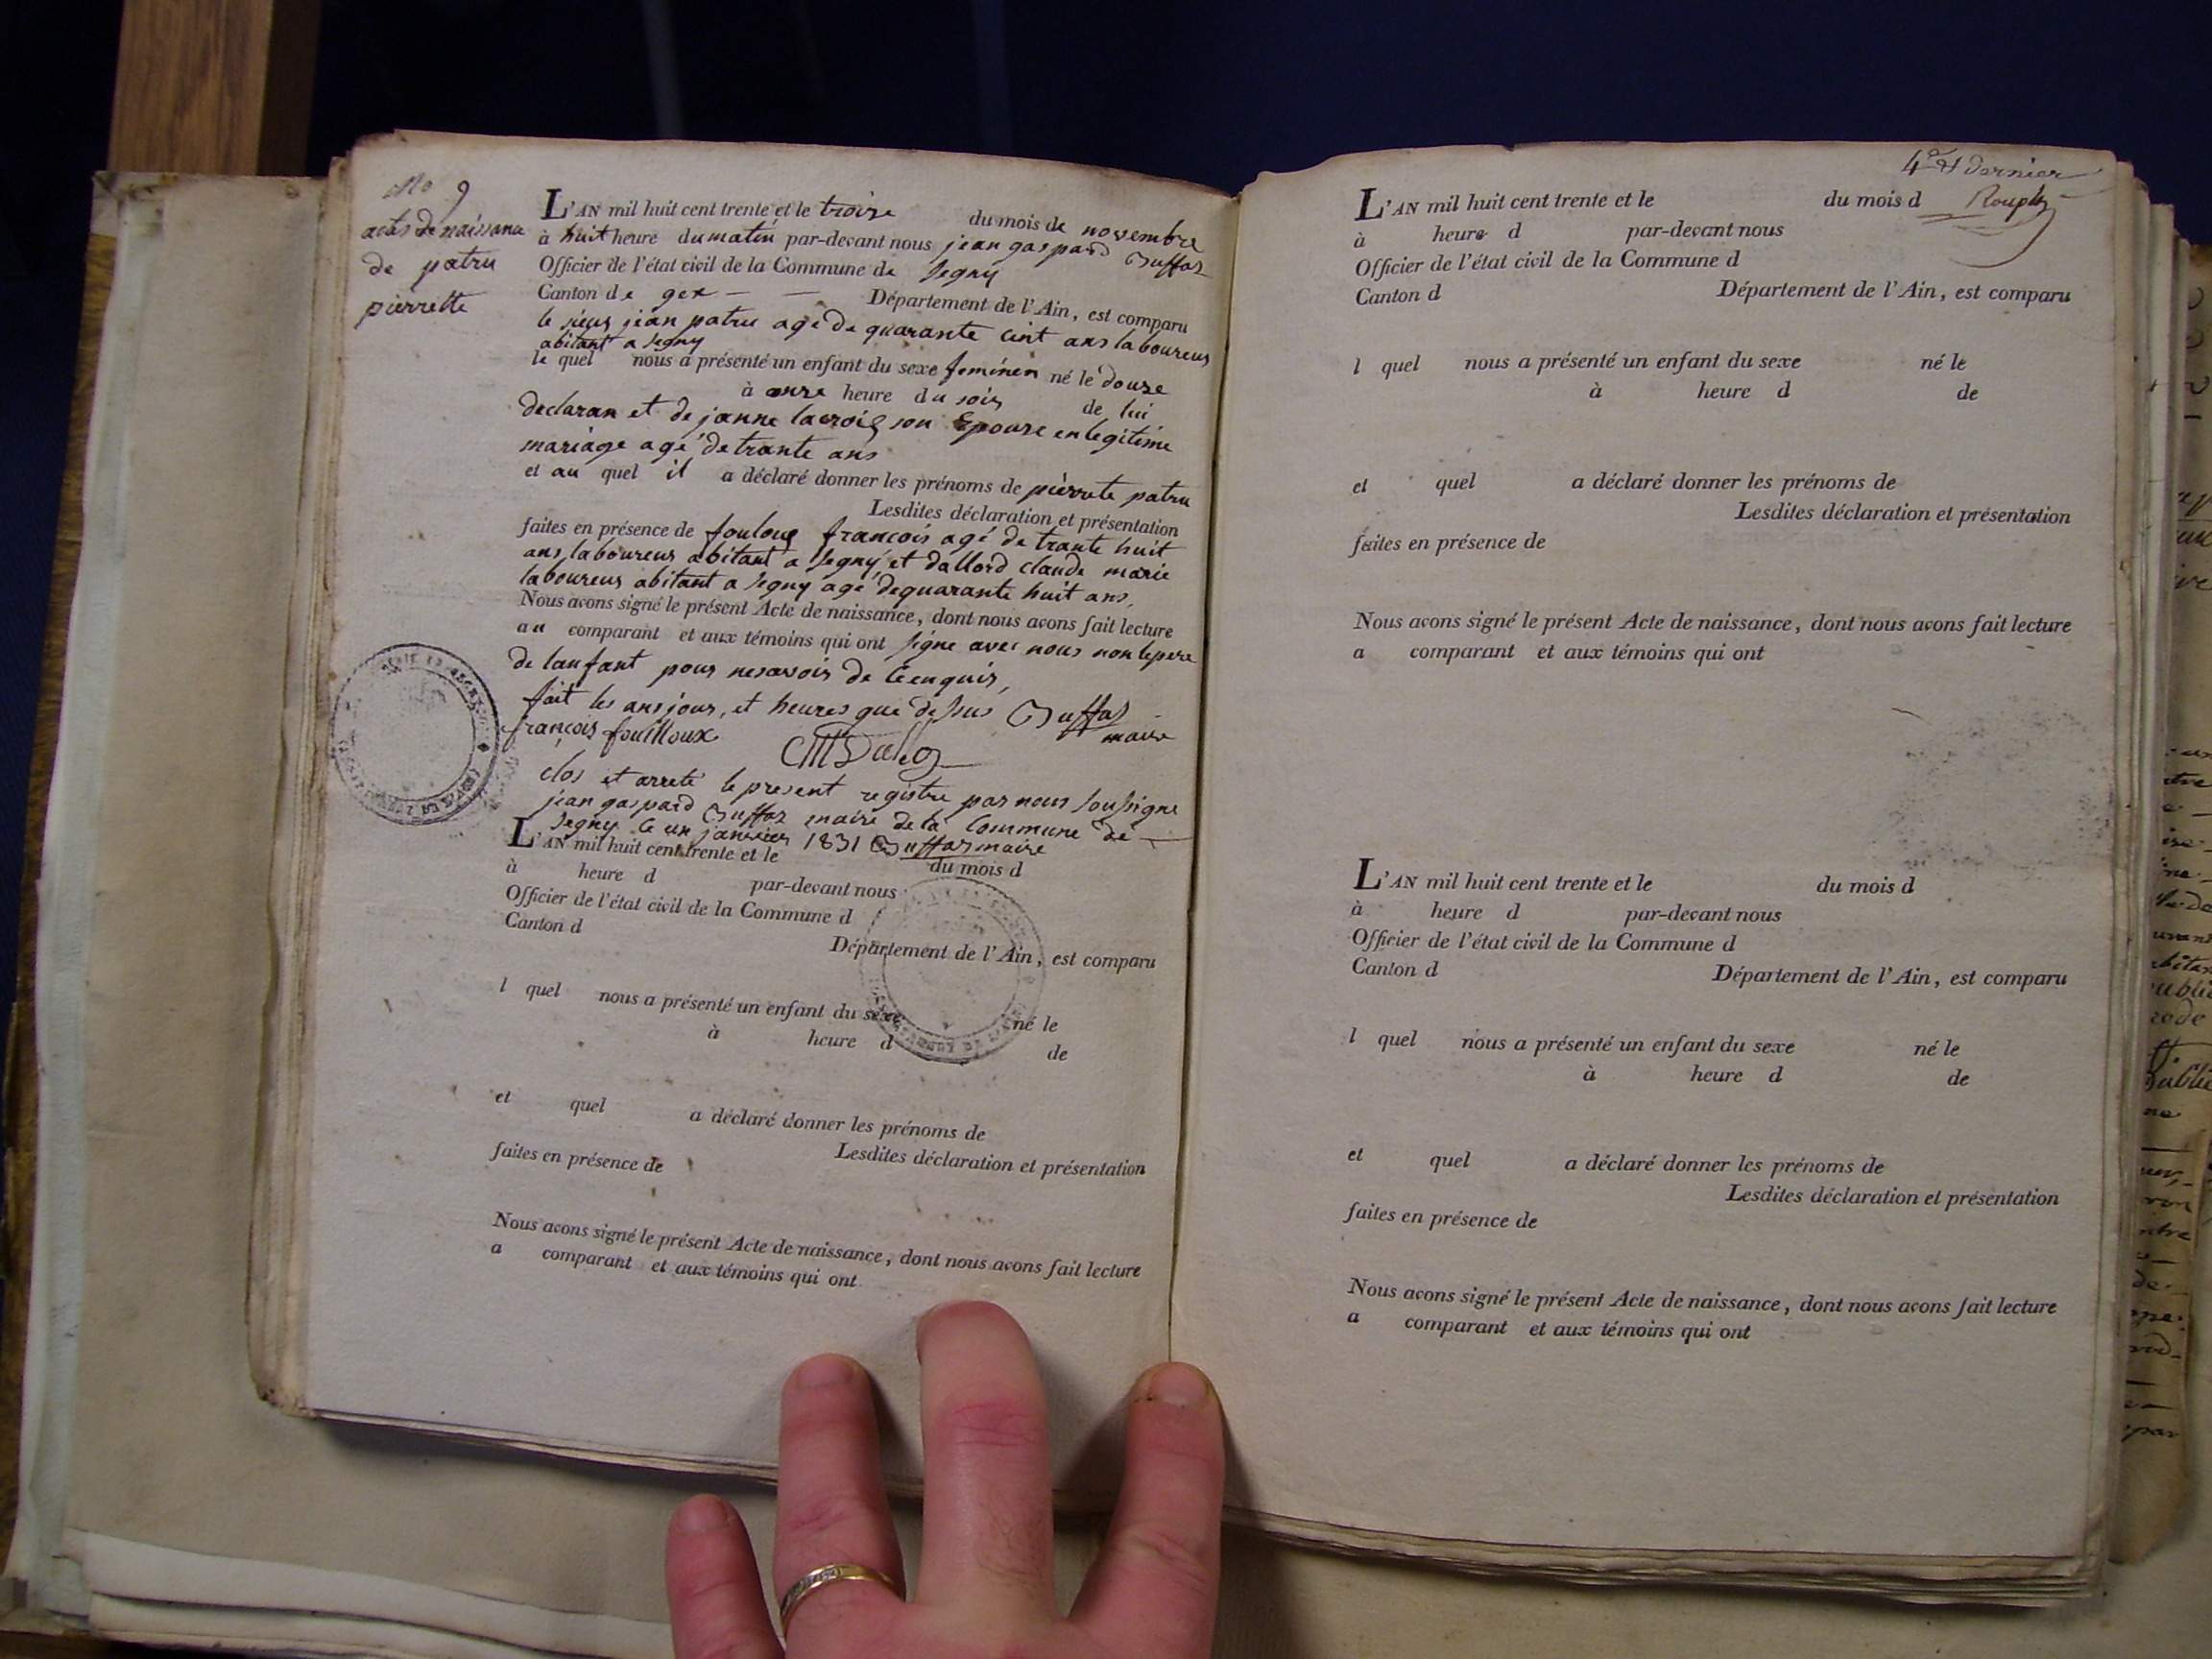 No 9
actes de naissance
de patru
pierrette
L'AN mil huit cent trente et le troize du mois de novembre
à huit heure du matin par-devant nous jean gaspard Buffaz
Officier de l'état civil de la Commune de Segny
Canton de gex — — Département de l'Ain, est comparu
le sieur jean patru agé de quarante cint ans laboureur
abitant a Segny
le quel nous a présenté un enfant du sexe feminen né le douze
à onze heure du soir de lui
declaran et de janne lacroix son Epouze en legitime
mariage agé de trante ans
et au quel il a déclaré donner les prénoms de pierrete patru
Lesdites déclaration et présentation
faites en présence de fouloux francois agé de trante huit
ans laboureur abitant a Segny et dallord claude marie
laboureur abitant a Segny agé de quarante huit ans,
Nous avons signé le présent Acte de naissance, dont nous avons fait lecture
au comparant et aux témoins qui ont signe avec nous non le pere
de lanfant pour ne savoir de ce enquis,
fait les ans jour, et heures que dessus Buffaz
maire
françois fouilloux
clos et arreté le present registre par nous soussigne
jean gaspard Buffaz maire de la Commune de —
Segny le un janvier 1831 Buffaz maire
L'AN mil huit cent trente et le du mois d
à heure d par-devant nous
Officier de l'état civil de la Commune d
Canton d
Département de l'Ain, est comparu
l quel nous a présenté un enfant du sexe né le
à heure d de
et quel a déclaré donner les prénoms de
Lesdites déclaration et présentation
faites en présence de
Nous avons signé le présent Acte de naissance, dont nous avons fait lecture
a comparant et aux témoins qui ont
4e et dernier
L'AN mil huit cent trente et le du mois d
à heure d par-devant nous
Officier de l'état civil de la Commune d
Canton d Département de l'Ain, est comparu
l quel nous a présenté un enfant du sexe né le
à heure d de
et quel a déclaré donner les prénoms de
Lesdites déclaration et présentation
faites en présence de
Nous avons signé le présent Acte de naissance, dont nous avons fait lecture
a comparant et aux témoins qui ont
L'AN mil huit cent trente et le du mois d
à heure d par-devant nous
Officier de l'état civil de la Commune d
Canton d Département de l'Ain, est comparu
l quel nous a présenté un enfant du sexe né le
à heure d de
et quel a déclaré donner les prénoms de
Lesdites déclaration et présentation
faites en présence de
Nous avons signé le présent Acte de naissance, dont nous avons fait lecture
a comparant et aux témoins qui ont